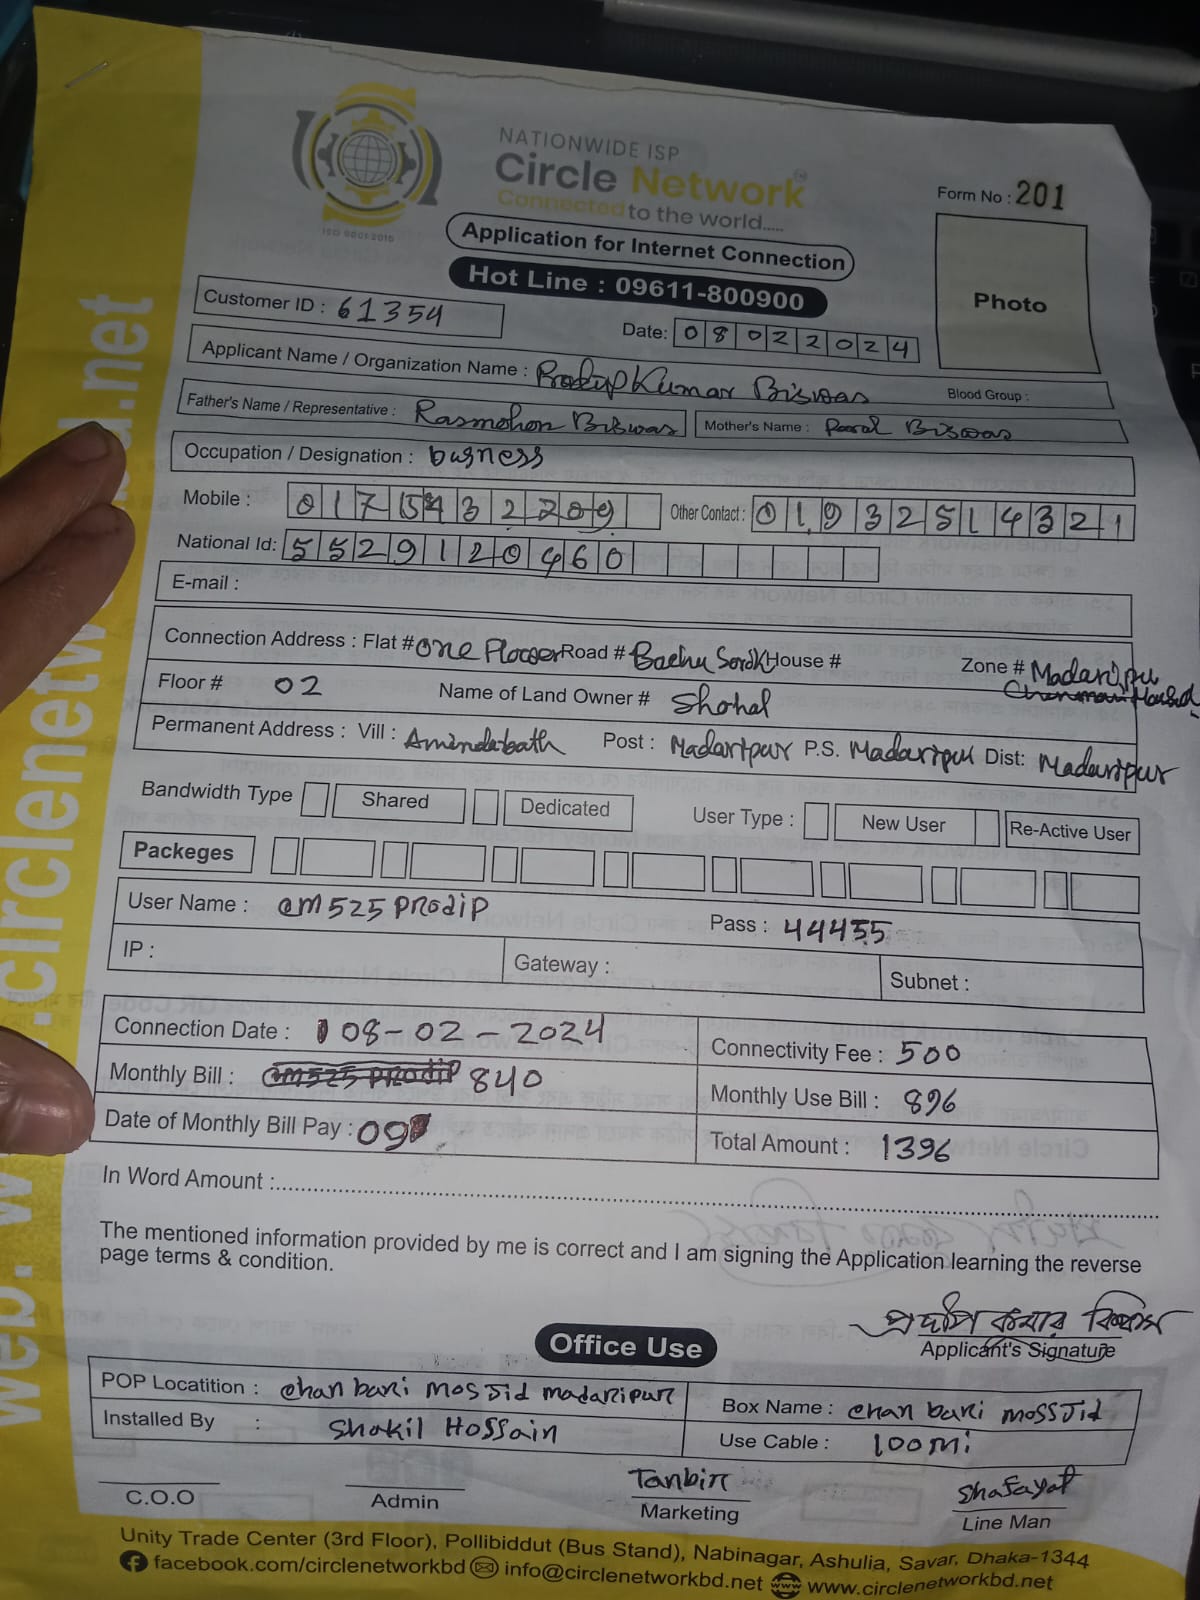 NATIONWIDE ISP
Circle Network
Connected to the world.....
ISO 9001:2015
Form No : 201
Application for Internet Connection
Hot Line : 09611-800900
Photo
Customer ID : 61354
Date: 08022024
Applicant Name / Organization Name : Prodip Kumar Biswas
Blood Group :
Father's Name / Representative : Rasmohon Biswas Mother's Name : Biswas
Occupation / Designation : busness
Mobile : 01754322209 Other Contact : 01932514321
National Id: 5529120460
E-mail :
Connection Address : Flat # one Road # Bachu House # Zone # Madaripur
Floor # 02 Name of Land Owner # Shohal
Permanent Address : Vill : Post : Madaripur P.S. Madaripur Dist: Madaripur
Bandwidth Type Shared Dedicated User Type : New User Re-Active User
Packeges
User Name : cm525prodip Pass : 44455
IP : Gateway : Subnet :
Connection Date : 08-02-2024 Connectivity Fee : 500
Monthly Bill : cm525prodip 840 Monthly Use Bill : 896
Date of Monthly Bill Pay : 09 Total Amount : 1396
In Word Amount :
The mentioned information provided by me is correct and I am signing the Application learning the reverse
page terms & condition.
প্রদীপ কুমার বিশ্বাস
Applicant's Signature
Office Use
POP Locatition : chan bari mossjid madaripur Box Name : chan bari mossjid
Installed By : Shakil Hossain Use Cable : 100mi
Tanbir Shafayat
C.O.O Admin Marketing Line Man
Unity Trade Center (3rd Floor), Pollibiddut (Bus Stand), Nabinagar, Ashulia, Savar, Dhaka-1344
facebook.com/circlenetworkbd info@circlenetworkbd.net www.circlenetworkbd.net